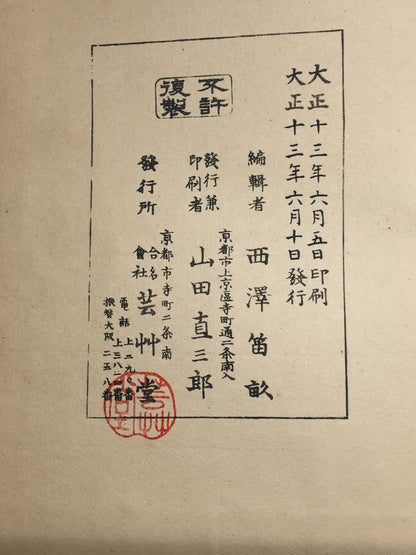 大正十三年六月五日印刷
大正十三年六月十日發行
不許
復製
編輯者 西澤笛畝
京都市上京區寺町通二条南入
發行兼
印刷者 山田直三郎
京都市寺町二条南
發行所 合名
會社 芸艸堂
電話 上二九〇番
上三八二四番
振替大阪二五八番
芸艸
堂